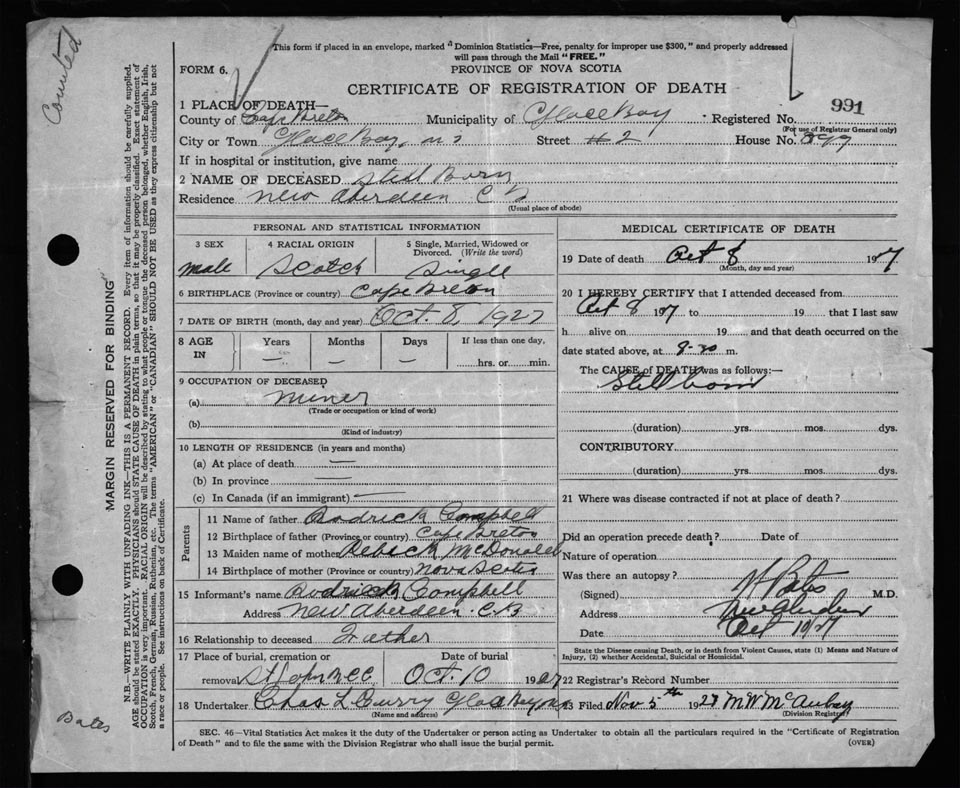 Counted
This form if placed in an envelope, marked "Dominion Statistics—Free, penalty for improper use $300," and properly addressed
will pass through the Mail "FREE."
FORM 6.
PROVINCE OF NOVA SCOTIA
CERTIFICATE OF REGISTRATION OF DEATH
991
1 PLACE OF DEATH—
County of Cape Breton Municipality of Glace Bay Registered No.
(For use of Registrar General only)
City or Town Glace Bay, Street # 2 House No.
If in hospital or institution, give name
2 NAME OF DECEASED Still Born
Residence New Aberdeen C B
(Usual place of abode)
PERSONAL AND STATISTICAL INFORMATION
3 SEX 4 RACIAL ORIGIN 5 Single, Married, Widowed or Divorced. (Write the word)
Male Scotch Single
6 BIRTHPLACE (Province or country) Cape Breton
7 DATE OF BIRTH (month, day and year) Oct. 8, 1927
8 AGE IN Years Months Days If less than one day,
— — — ........hrs. or........min.
9 OCCUPATION OF DECEASED
(a) Miner
(Trade or occupation or kind of work)
(b)
(Kind of industry)
10 LENGTH OF RESIDENCE (in years and months)
(a) At place of death —
(b) In province —
(c) In Canada (if an immigrant) —
Parents
11 Name of father Rodrick Campbell
12 Birthplace of father (Province or country) Cape Breton
13 Maiden name of mother McDonald
14 Birthplace of mother (Province or country) Nova Scotia
15 Informant's name Rodrick Campbell
Address New Aberdeen C.B
16 Relationship to deceased Father
17 Place of burial, cremation or removal Date of burial
Oct 10 1927
18 Undertaker Chas L Curry Glace Bay
(Name and address)
MEDICAL CERTIFICATE OF DEATH
19 Date of death Oct 8 1927
(Month, day and year)
20 I HEREBY CERTIFY that I attended deceased from
Oct 8 1927 to 19 that I last saw
h alive on 19 and that death occurred on the
date stated above, at 9-30 m.
The CAUSE of DEATH was as follows:—
Stillborn
(duration) yrs. mos. dys.
CONTRIBUTORY.
(duration) yrs. mos. dys.
21 Where was disease contracted if not at place of death?
Did an operation precede death? Date of
Nature of operation
Was there an autopsy?
(Signed) Bates M.D.
Address New Aberdeen
Date Oct 1927
State the Disease causing Death, or in death from Violent Causes, state (1) Means and Nature of
Injury, (2) whether Accidental, Suicidal or Homicidal.
22 Registrar's Record Number
23 Filed Nov 5th 1927 M W
(Division Registrar)
SEC. 46—Vital Statistics Act makes it the duty of the Undertaker or person acting as Undertaker to obtain all the particulars required in the "Certificate of Registration
of Death" and to file the same with the Division Registrar who shall issue the burial permit.
(OVER)
MARGIN RESERVED FOR BINDING
N.B.—WRITE PLAINLY WITH UNFADING INK—THIS IS A PERMANENT RECORD. Every item of information should be carefully supplied.
AGE should be stated EXACTLY. PHYSICIANS should STATE CAUSE OF DEATH in plain terms, so that it may be properly classified. Exact statement of
OCCUPATION is very important. RACIAL ORIGIN will be described by stating to what people or tongue the deceased person belonged, whether English, Irish,
Scotch, French, German, Russian, Ruthenian, etc. The terms "AMERICAN" or "CANADIAN" SHOULD NOT BE USED as they express citizenship but not
a race or people. See instructions on back of Certificate.
Bates